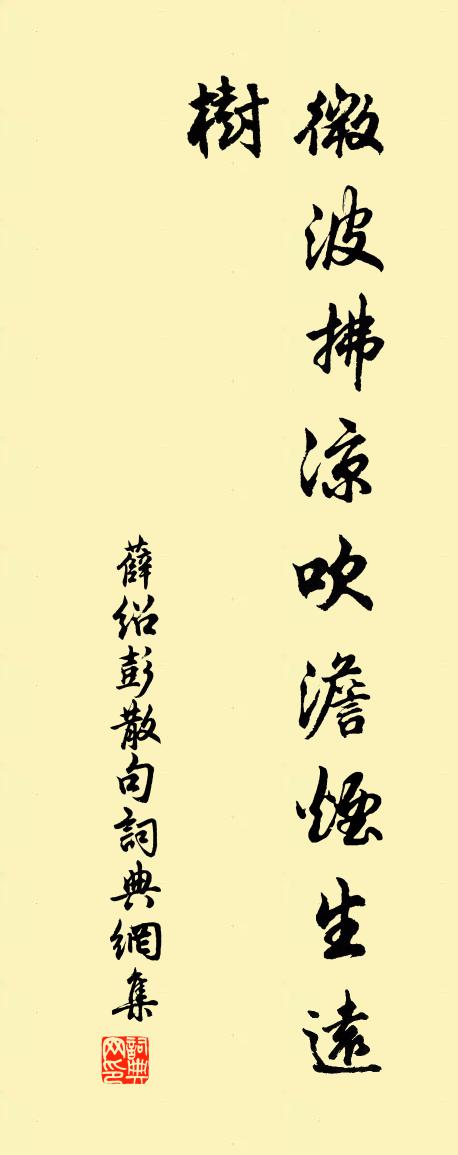 微波拂涼吹澹煙生遠
樹
薛紹彭散句詞典網集
詞典網印